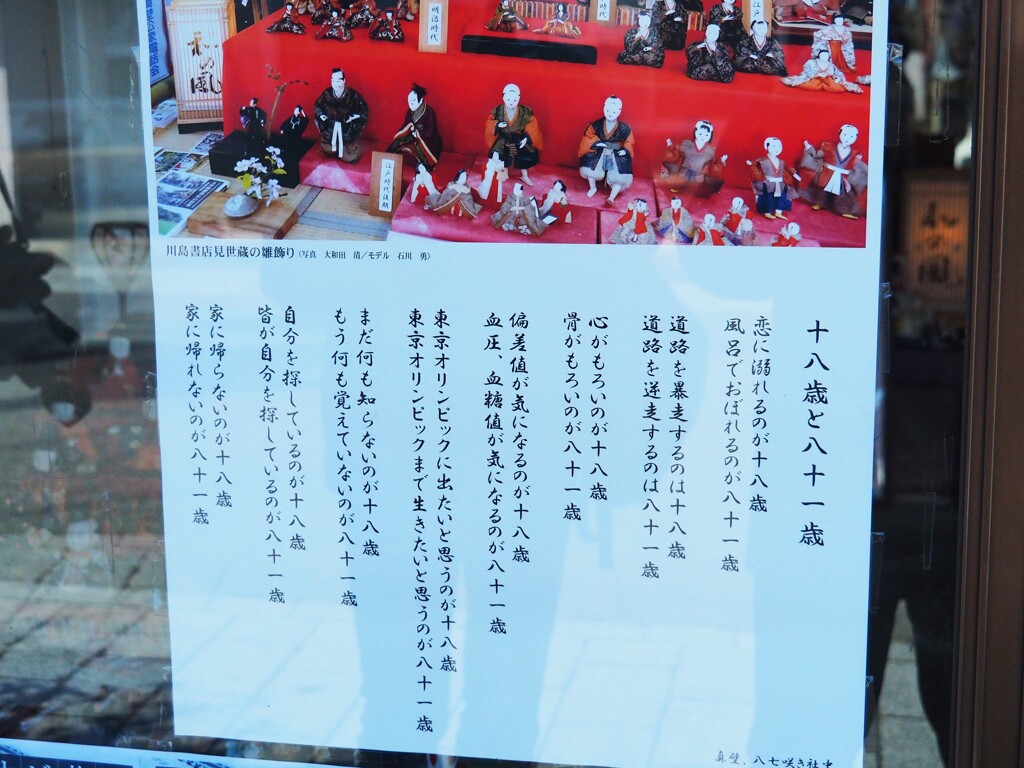 明治時代
和の風
江戸時代後期
川島書店見世蔵の雛飾り(写真 大和田 清/モデル 石川 勇)
十八歳と八十一歳
恋に溺れるのが十八歳
風呂でおぼれるのが八十一歳
道路を暴走するのは十八歳
道路を逆走するのは八十一歳
心がもろいのが十八歳
骨がもろいのが八十一歳
偏差値が気になるのが十八歳
血圧、血糖値が気になるのが八十一歳
東京オリンピックに出たいと思うのが十八歳
東京オリンピックまで生きたいと思うのが八十一歳
まだ何も知らないのが十八歳
もう何も覚えていないのが八十一歳
自分を探しているのが十八歳
皆が自分を探しているのが八十一歳
家に帰らないのが十八歳
家に帰れないのが八十一歳
真壁、八七咲き社中